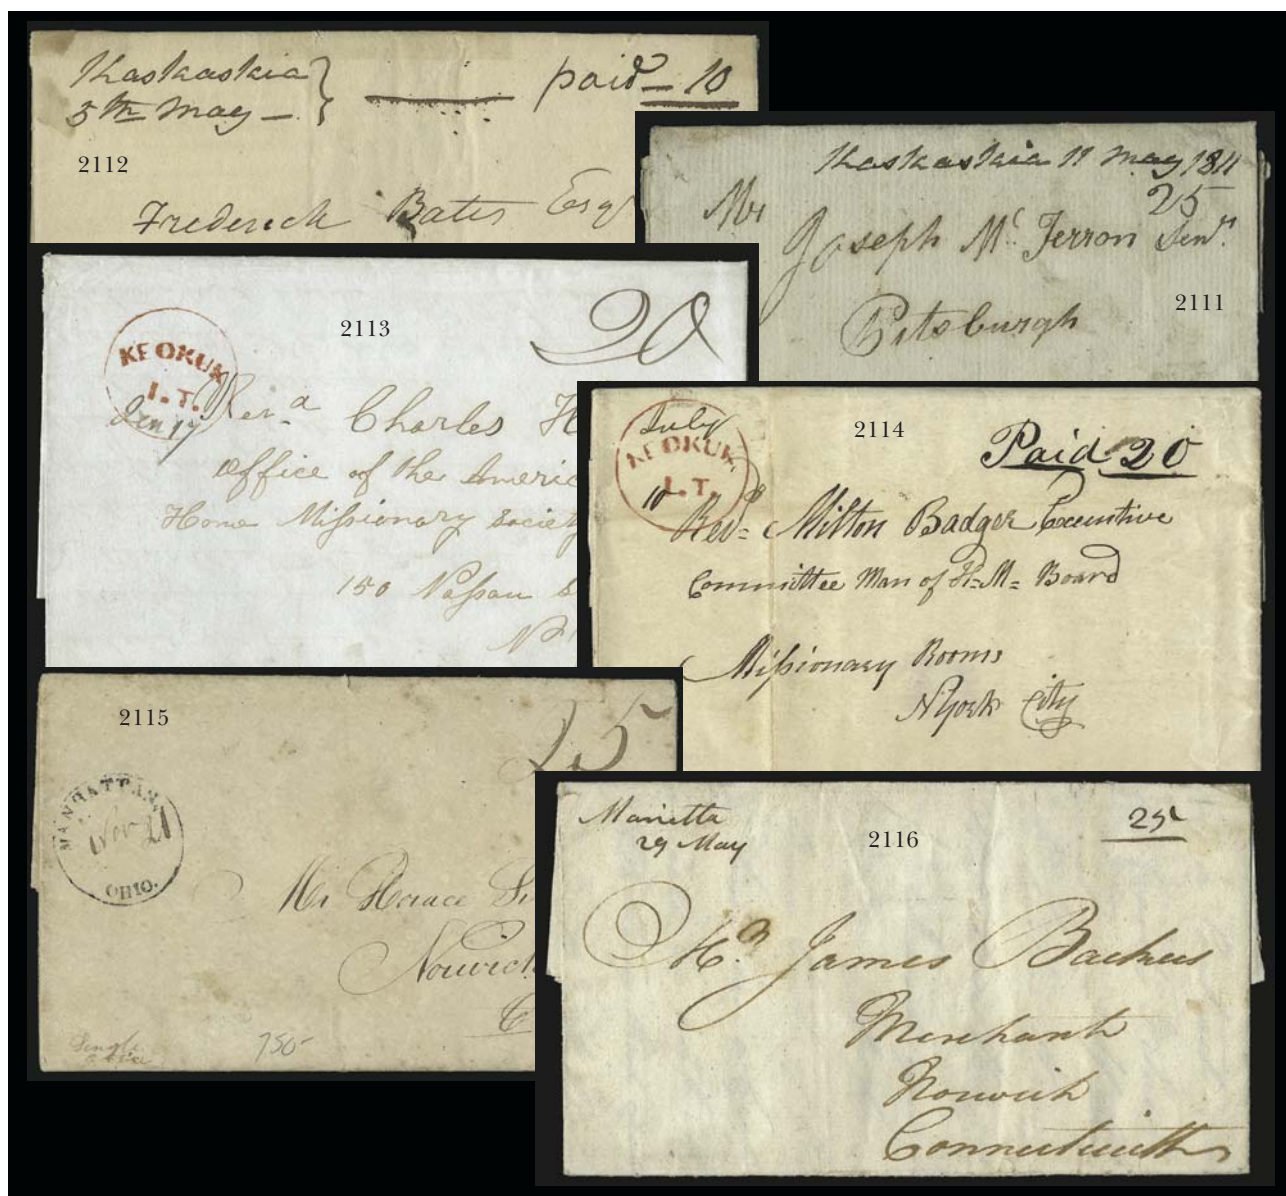 Kaskaskia } paid – 10
5th May –
2112
Frederick Bates Esqr
Kaskaskia 11 May 1811
25
Mr
Joseph Mc. Ferron Senr.
2111
Pitsburgh
2113
20
KEOKUK
I.T.
Jan 17
Revd. Charles H
Office of the Americ
Home Missionary Society
150 Nassau S
N
July
2114
KEOKUK,
I.T.
10
Paid 20
Revd= Milton Badger Executive
Committee Man of H=M= Board
Missionary Rooms
NYork City
2115
25
MANHATTAN,
Nov 21
OHIO.
Mr Horace
Norwich
C
Single
750-
Marietta
29 May
2116
25
Mr. James Backus
Merchant
Norwich
Connecticutt